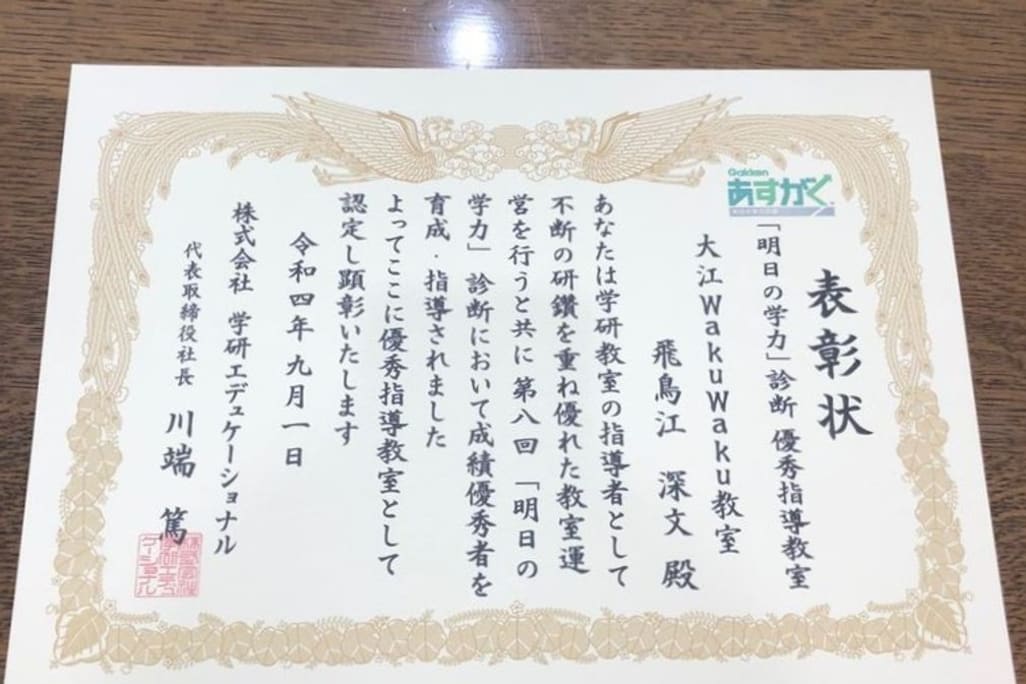 Gakken
あすがく
表彰状
「明日の学力」診断 優秀指導教室
大江WakuWaku教室
飛鳥江 深文 殿
あなたは学研教室の指導者として
不断の研鑽を重ね優れた教室運
営を行うと共に第八回「明日の
学力」診断において成績優秀者を
育成・指導されました
よってここに優秀指導教室として
認定し顕彰いたします
令和四年九月一日
株式会社 学研エデュケーショナル
代表取締役社長 川端 篤